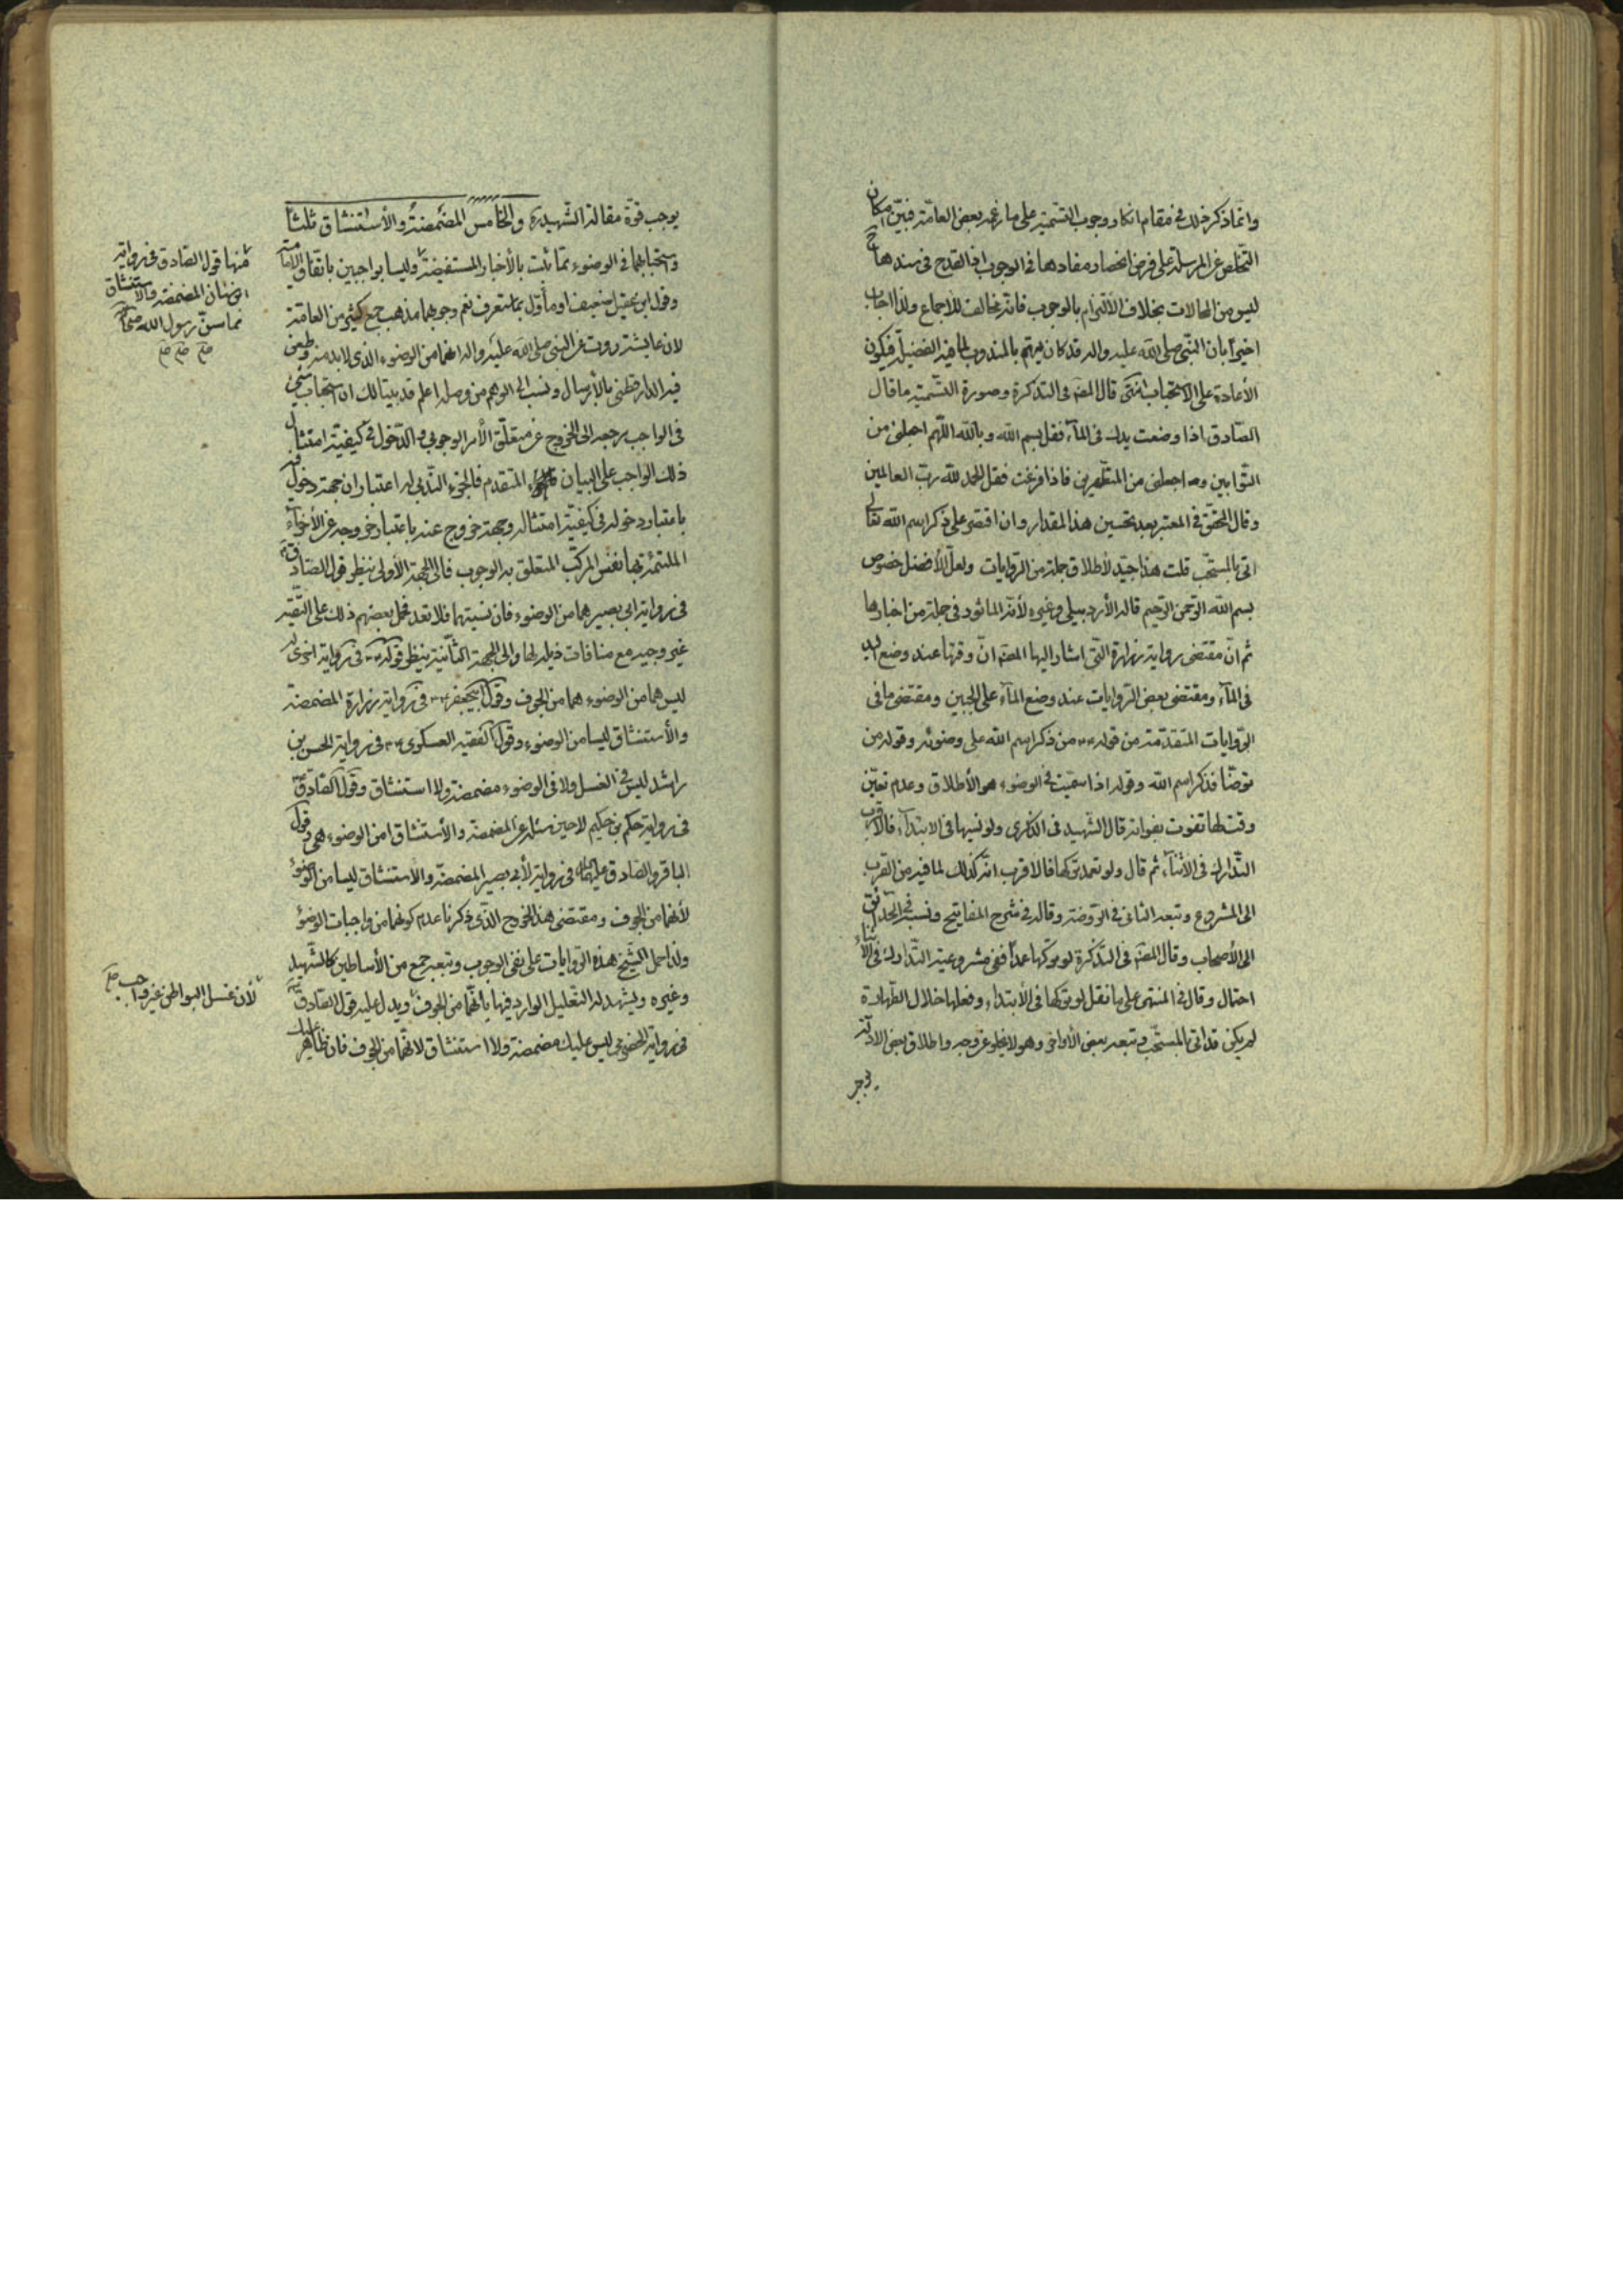 وانما ذكر ذلك في مقام انكار وجوب التسمية على ما زعمه بعض العامّة فبيّن امكان
التخلص عن المرسلة على فرض انحصار مفادها في الوجوب اذ القدح في سندها ح
ليس من المحالات بخلاف الالتزام بالوجوب فانه مخالف للاجماع ولذا اجاب
اخيرا بان النبي صلى الله عليه واله قد كان يهتم بالمندوب لما فيه الفضيلة فيكون
الأعادة على الاستحباب انتهى قال المصه في التذكرة وصورة التسمية ما قال
الصّادق اذا وضعت يدك في المآء فقل بسم الله وبالله اللّهم اجعلني من
التوّابين واجعلني من المتطهرين فاذا فرغت فقل الحمد للّه ربّ العالمين
وقال المحقّق في المعتبر بعد تحسين هذا المقدار وان اقتصر على ذكر اسم الله تعالى
اتى بالمستحّب قلت هذا جيّد لأطلاق جملة من الرّوايات ولعلّ الأفضل خصوص
بسم الله الرّحمن الرّحيم قاله الأردبيلي وغيره لأنّه الماثور في جملة من اخبارها
ثم انّ مقتضى رواية زرارة التّي اشار اليها المصه انّ وقتها عند وضع اليد
في المآء ومقتضى بعض الرّوايات عند وضع المآء على الجبين ومقتضى ما في
الرّوايات المتقدّمة من قوله من ذكر اسم اللّه على وضوئه وقوله من
توضّا فذكر اسم الله وقوله اذا سمّيت في الوضوء هو الأطلاق وعدم تعيّن
وقت لها تفوت بفواته قال الشّهيد في الذكرى ولو نسيها في الابتدآء فالاقرب
التّدارك في الأثنآء ثم قال ولو تعمد تركها فالاقرب انّه كذلك لما فيه من القرب
الى المشروع وتبعه الثانى في الرّوضة وقاله في شرح المفاتيح ونسبه في الحدائق
الى الأصحاب وقال المصه في التذكرة لو تركها عمدا ففي مشروعية التّدارك في الأثناء
احتمال وقال في المنتهى على ما نقل لو تركها في الأبتداء وفعلها خلال الطّهارة
لم يكن قد اتى بالمستحّب وتبعه بعض الأواخر وهو لا يخلو عن وجه واطلاق بعض الادلّة
يوجب
يوجب قوّة مقالة الشّهيد ره والخامس المضمضة والأستنشاق ثلثا
واستحبابهما في الوضوء تمّا ثبت بالأخبار المستفيضة وليسا بواجبين باتفاق الاماميّة
وقول ابن عقيل ضعيف او مأوّل بما ستعرف نعم وجوبهما مذهب جمع كثير من العامّة
لان عايشة روت عن النبي صلى الله عليه واله انهما من الوضوء الذي لابد منه وطعن
فيه الدارقطني بالأرسال ونسب الى الوهم من وصله اعلم قد بيّنا لك ان استحباب شيء
في الواجب يرجع الى الخروج عن متعلّق الأمر الوجوبي والدّخول في كيفيّة امتثال
ذلك الواجب على البيان المتقدم فالجزء النّدبي له اعتباران جهة دخول فيه
باعتبار دخوله في كيفيّة امتثاله وجهة خروج عنه باعتبار خروجه عن الأجزآء
الملتئمة بها نفس المركّب المتعلق به الوجوب فالى الجهة الأولى ينظر قول الصّادق
في رواية ابي بصير هما من الوضوء فان نسيتهما فلا تعد فحمل بعضهم ذلك على التقيّة
غير وجيه مع منافات ذيله لها والى الجهة الثّانية ينظر قوله في رواية اخرى له
ليس هما من الوضوء هما من الجوف وقول ابي جعفر في رواية زرارة المضمضة
والأستنشاق ليسا من الوضوء وقول الفقيه العسكري في رواية الحسن بن
راشد ليس في الغسل ولا في الوضوء مضمضة ولا استنشاق وقول الصّادق
في رواية حكم بن حكيم لا حين سئله عن المضمضة والأستنشاق امن الوضوء هي وقول
الباقر والصّادق عليهما في رواية لأبي بصير المضمضة والأستنشاق ليسا من الوضوء
لأنهما من الجوف ومقتضى هذا الخروج الّذى ذكرنا عدم كونهما من واجبات الوضوء
ولذا حمل الشّيخ هذه الرّوايات على نفي الوجوب وتبعه جمع من الأساطين كالشّهيد
وغيره ويشهد له التعليل الوارد فيها بانّهما من الجوف ويدل عليه قول الصّادق
في رواية الحضرمي ليس عليك مضمضة ولا استنشاق لانّهما من الجوف فان ظاهر عليك
منها قول الصادق في رواية
ابن سنان المضمضة والاستنشاق
مما سنّ رسول الله
صح صح صح
لأن غسل البواطن غير واجب صح